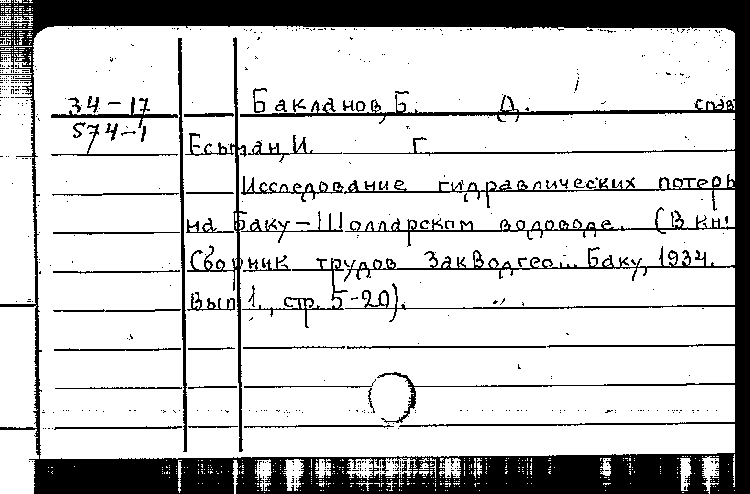 34-17 Бакланов, Б. Д. спав
574-1 Есьман, И. Г.
Исследование гидравлических потерь
на Баку-Шолларском водоводе. (В кн:
Сборник трудов ЗакВодгео... Баку, 1934.
Вып 1., стр. 5-20).